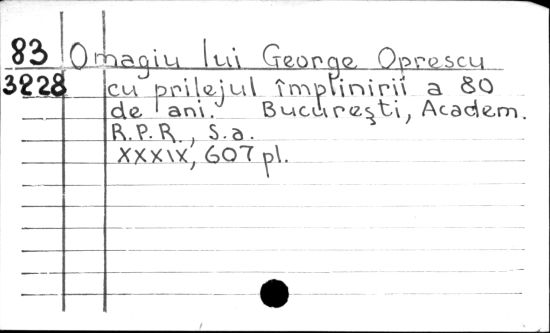 83 Omagiu lui George Oprescu
3228 cu prilejul împlinirii a 80
de ani. Bucureşti, Academ.
R.P.R., S.a.
XXXIX, 607 pl.